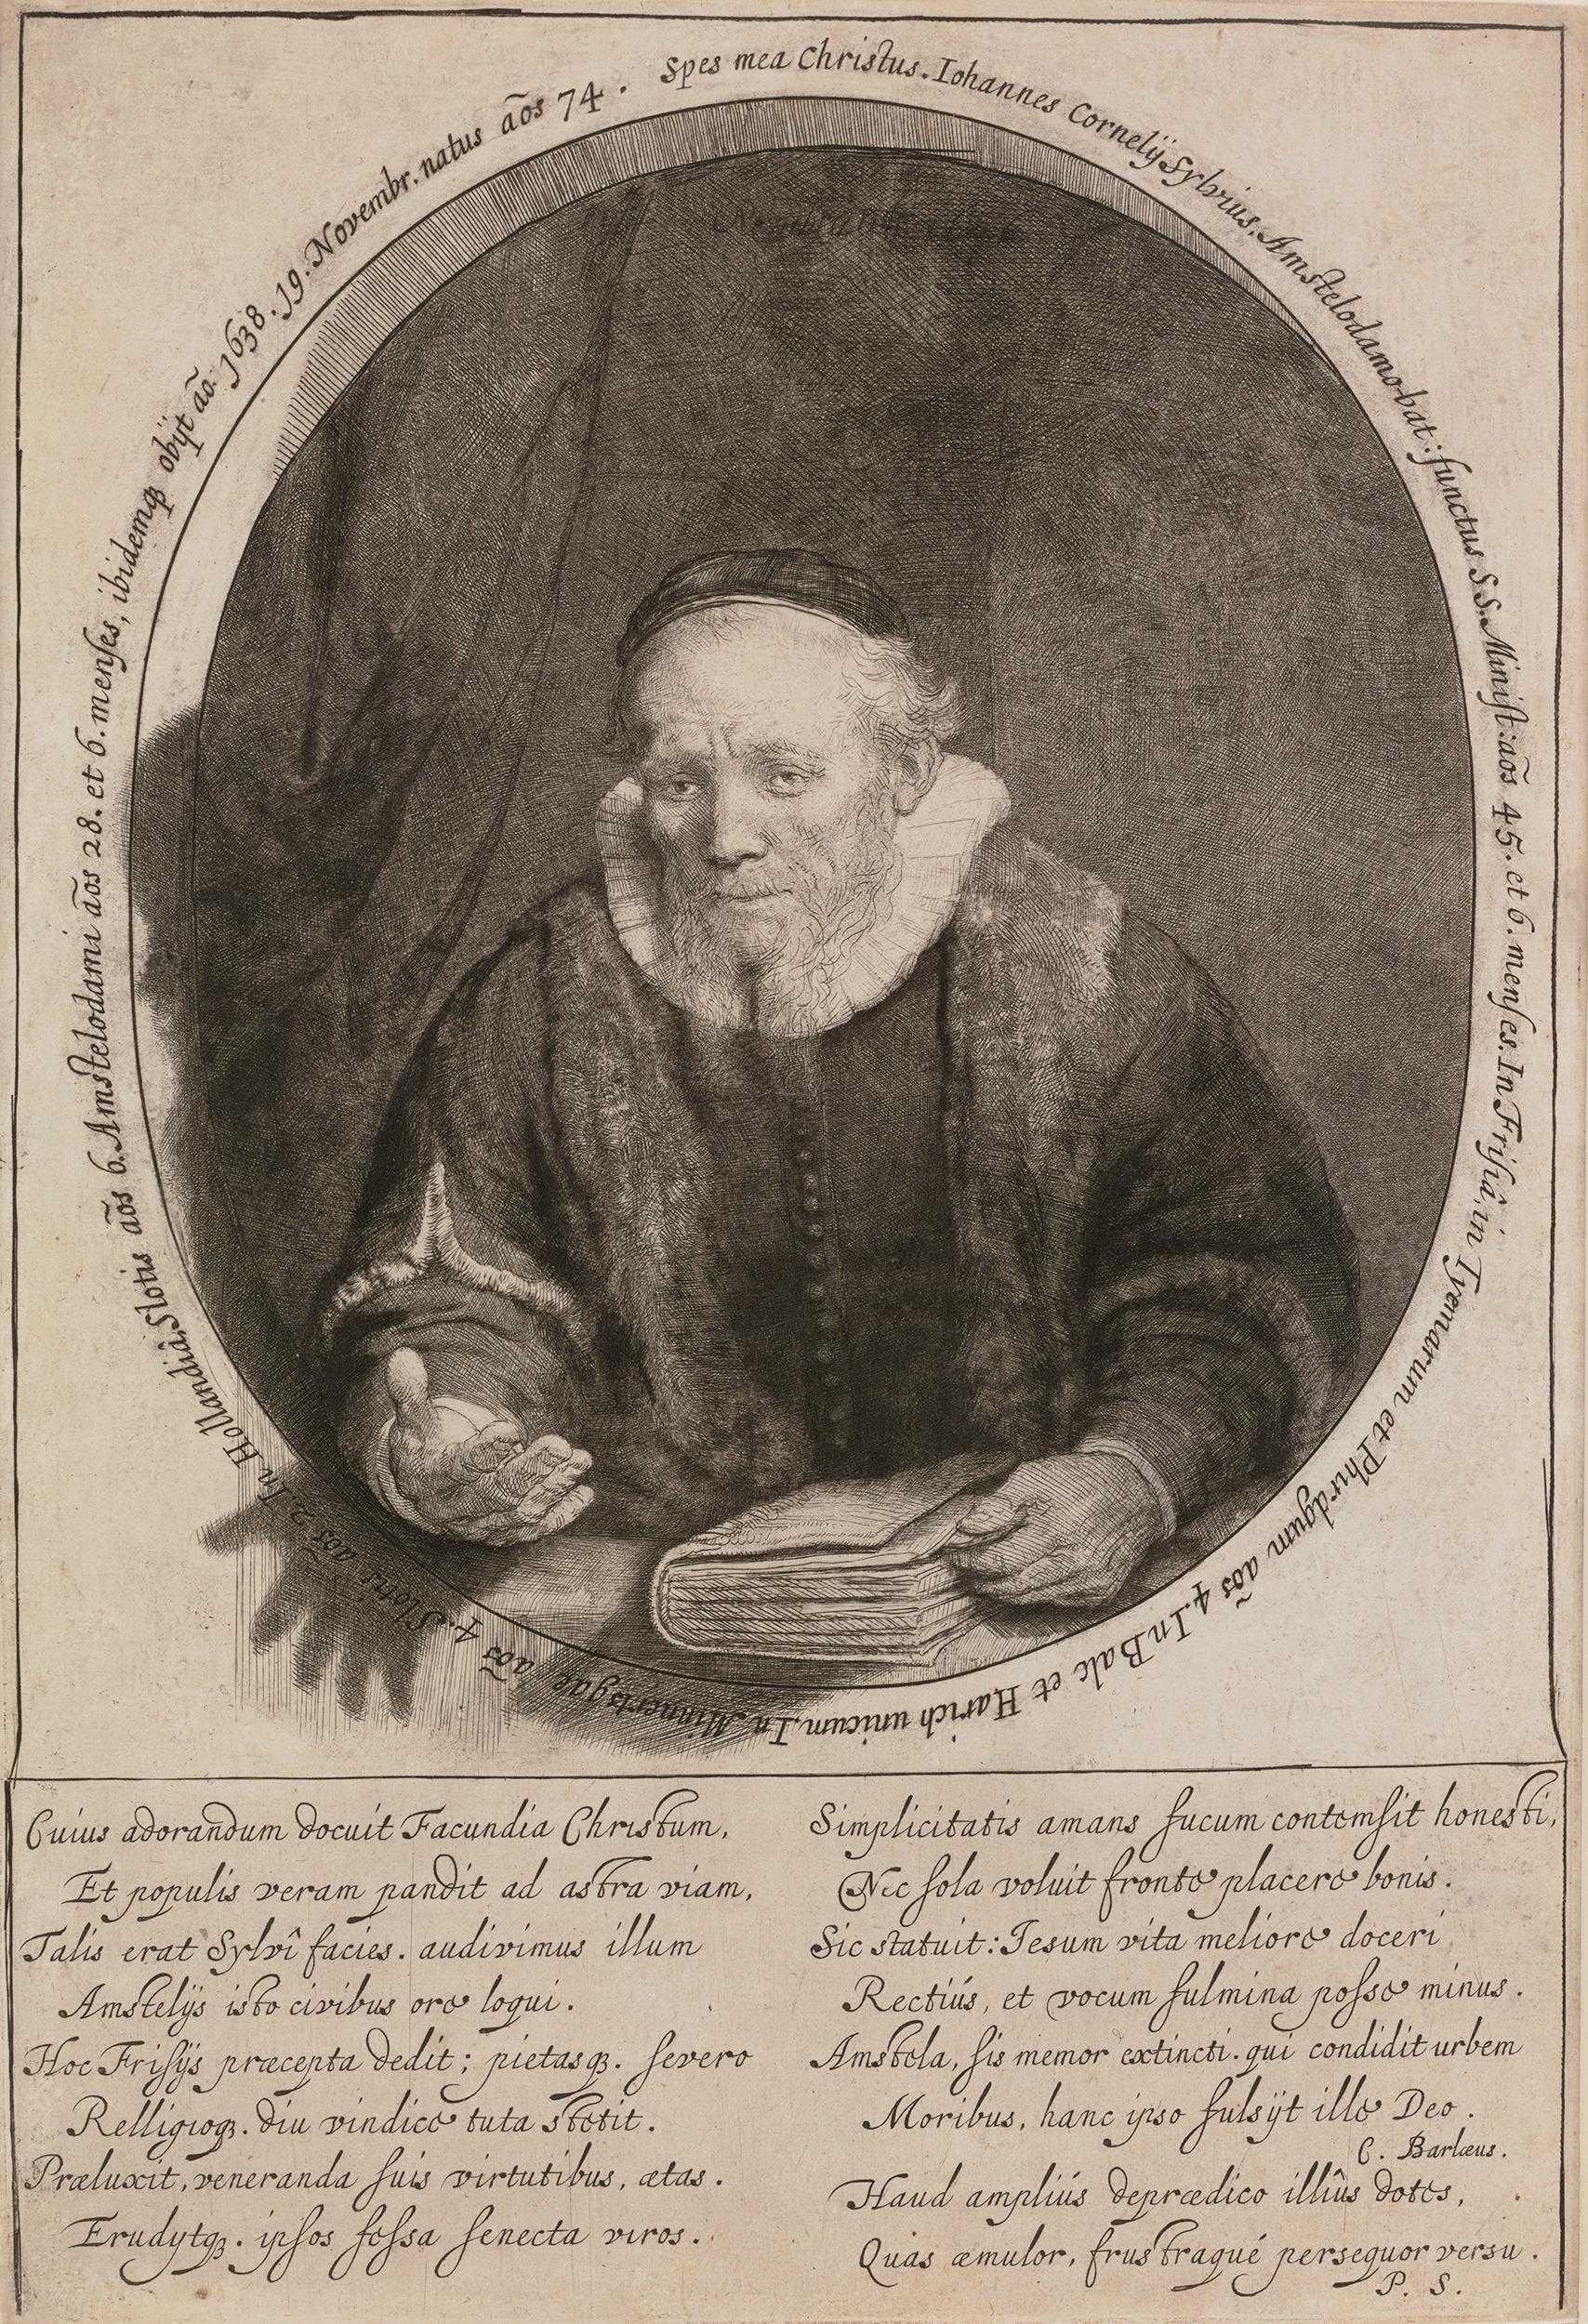 Spes mea Christus. Iohannes Cornelÿ Sylvius, Amstelodamo-bat: functus S.S. Minist: aõs 45. et 6. menses. In Frisiâ, in Tyemarum et Phirdgum aõs 4. In Balc et Harich unicum, In Minnertsgae aõs 4. Slotis aõs 2. In Hollandiâ, Slotis aõs 6. Amstelodami aõs 28. et 6. menses, ibidemqȝ obÿt aõ. 1638. 19. Novembr. natus aõs 74.
Cuius adorandum docuit Facundia Christum,
Et populis veram pandit ad astra viam,
Talis erat Sylvî facies. audivimus illum
Amstelÿs isto civibus ore loqui.
Hoc Frisÿs præcepta dedit; pietasqȝ. severo
Relligioqȝ. diu vindice tuta stetit.
Præluxit, veneranda suis virtutibus, ætas.
Erudytqȝ. ipsos fessa senecta viros.
Simplicitatis amans fucum contemsit honesti,
Nec sola voluit fronte placere bonis.
Sic statuit: Iesum vita meliore doceri
Rectiús, et vocum fulmina posse minus.
Amstela, sis memor extincti. qui condidit urbem
Moribus, hanc ipso fulsÿt ille Deo.
C. Barlæus.
Haud ampliús deprædico illîus dotes,
Quas æmulor, frustraqué persequor versu.
P. S.